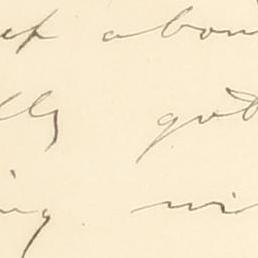 about
lly got
ing wi